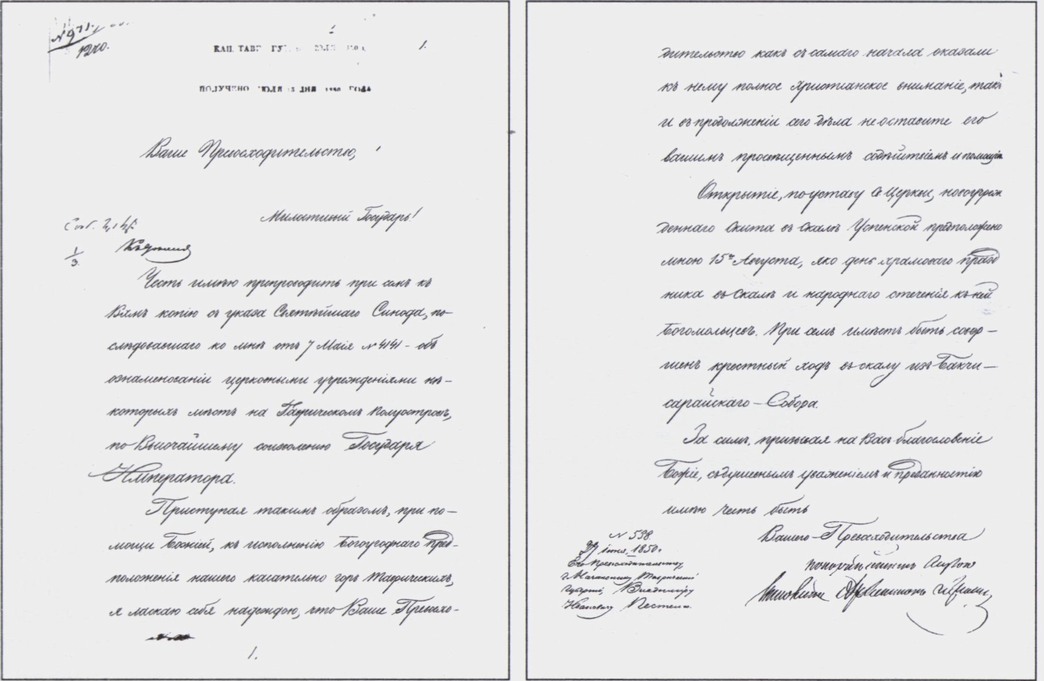 № 971.
1850.
КАН. ТАВР. ГУ
1.
ПОЛУЧЕНО ІЮЛЯ ДНЯ 1850 ГОДА
Ваше Превосходительство,
Милостивый Государь!
Честь имѣю препроводить при семъ къ
Вамъ копію съ указа Святѣйшаго Синода, по-
слѣдовавшаго ко мнѣ отъ 7 Маія № 4141 - объ
ознаменованіи церковными учрежденіями нѣ-
которыхъ мѣстъ на Таврическомъ полуостровѣ,
по Высочайшему соизволенію Государя
Императора.
Приступая такимъ образомъ, при по-
мощи Божіей, къ исполненію Богоугоднаго пред-
положенія нашего касательно горъ Таврическихъ,
я ласкаю себя надеждою, что Ваше Превосхо-
1.
дительство какъ съ самаго начала оказали
къ нему полное христіанское вниманіе, такъ
и въ продолженіи сего дѣла не оставите его
вашимъ просвѣщеннымъ содѣйствіемъ и помощію
Открытіе, по уставу Св Церкви, новоучреж
деннаго Скита въ скалѣ Успенской предположено
мною 15го Августа, яко день храмоваго празд
ника въ Скалѣ и народнаго стеченія къ ней
Богомольцевъ. При семъ имѣетъ быть совер-
шенъ крестный ходъ въ скалу изъ Бакчи-
сарайскаго - Собора.
За симъ, призывая на Васъ благословеніе
Божіе, съ душевнымъ уваженіемъ и преданностію
имѣю честь быть
Вашего - Превосходительства
покорнѣйшимъ слугою
Иннокентій Архіепископъ
№ 538
1850 г
Его Превосходительству
Г. Таврической
Губерніи, Владиміру
Ивановичу Пестелю